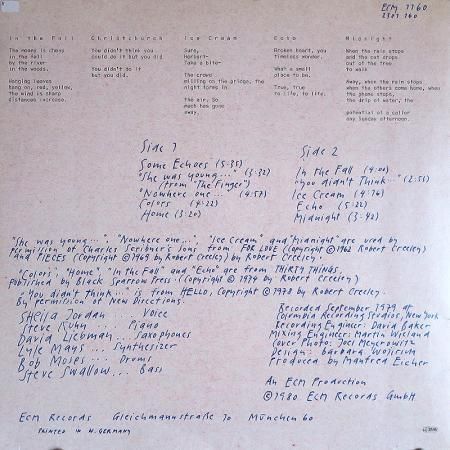 ECM 1160
2301 160
In the Fall
The moons is chevs
in the fall
by the river
in the woods.
Hanging leaves
hang on, red, yellow,
the wind is sharp
distances increase.
Christchurch
You didn't think you
could do it but you did.
You didn't do it
but you did.
Ice Cream
Sure,
Herbert-
Take a bite-
The crowd
milling on the bridge, the
night forms in
the air. So
much has gone
away.
Echo
Broken heart, you
timeless wonder.
What a small
place to be.
True, true
to life, to life.
Midnight
When the rain stops
and the cat drops
out of the tree
to walk
away, when the rain stops
when the others come home, when
the phone stops,
the drip of water, the
potential of a caller
any Sunday afternoon.
Side 1
Some Echoes (5:35)
"She was young..." (3:32)
(from "The Finger")
"Nowhere one..." (4:57)
Colors (4:22)
Home (3:20)
Side 2
In the Fall (4:04)
"You didn't Think..." (2:56)
Ice Cream (4:16)
Echo (5:22)
Midnight (3:42)
"She was young...", "Nowhere one...", "Ice Cream" and "Midnight" are used by
permission of Charles Scribner's Sons from FOR LOVE (Copyright ©1962 Robert Creeley)
and PIECES (Copyright ©1969 by Robert Creeley) by Robert Creeley.
"Colors", "Home", "In the Fall" and "Echo" are from THIRTY THINGS,
published by Black Sparrow Press (Copyright © 1974 by Robert Creeley)
"You didn't think..." is from HELLO, Copyright © 1978 by Robert Creeley.
By permission of New Directions.
Sheila Jordan ... Voice
Steve Kuhn ... Piano
David Liebman ... Saxophones
Lyle Mays ... Synthesizer
Bob Moses ... Drums
Steve Swallow ... Bass
Recorded September 1979 at
Columbia Recording Studios, New York
Recording Engineer: David Baker
Mixing Engineer: Martin Wieland
Cover Photo: Joel Meyerowitz
Design: Barbara Wojirsch
Produced by Manfred Eicher
An ECM Production
©1980 ECM Records GmbH
ECM Records Gleichmannstraße 10 München 60
Printed in W. Germany